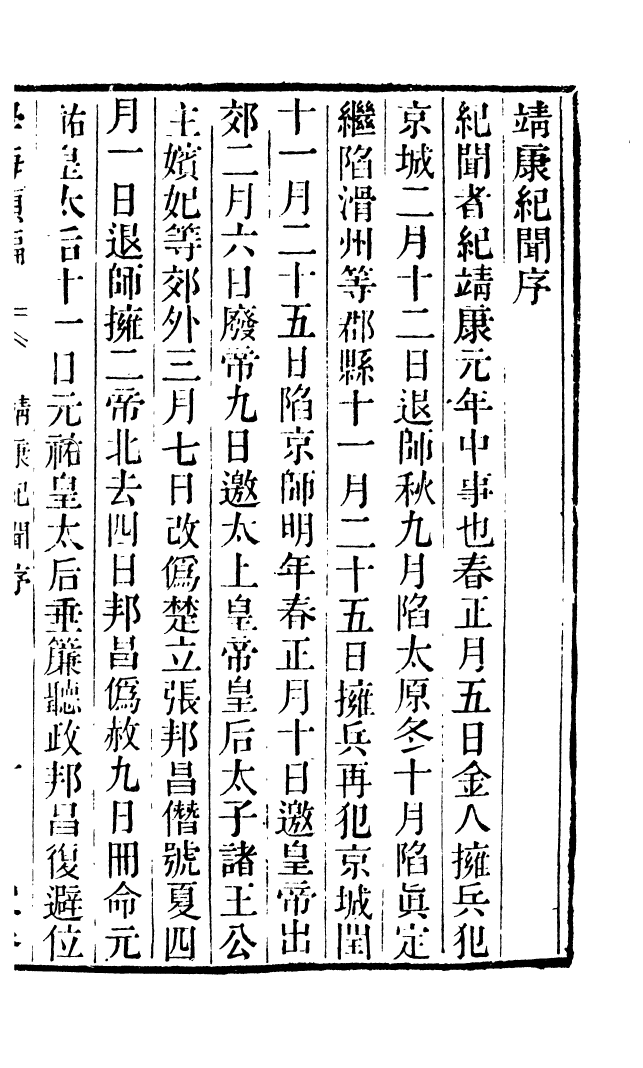 靖康紀聞序
紀聞者紀靖康元年中事也春正月五日金人擁兵犯
京城二月十二日退師秋九月陷太原冬十月陷眞定
繼陷滑州等郡縣十一月二十五日擁兵再犯京城閏
十一月二十五日陷京師明年春正月十日邀皇帝出
郊二月六日廢帝九日邀太上皇帝皇后太子諸王公
主嬪妃等郊外三月七日改僞楚立張邦昌僭號夏四
月一日退師擁二帝北去四日邦昌僞赦九日冊命元
祐皇太后十一日元祐皇太后垂簾聽政邦昌復避位
靖康紀聞序